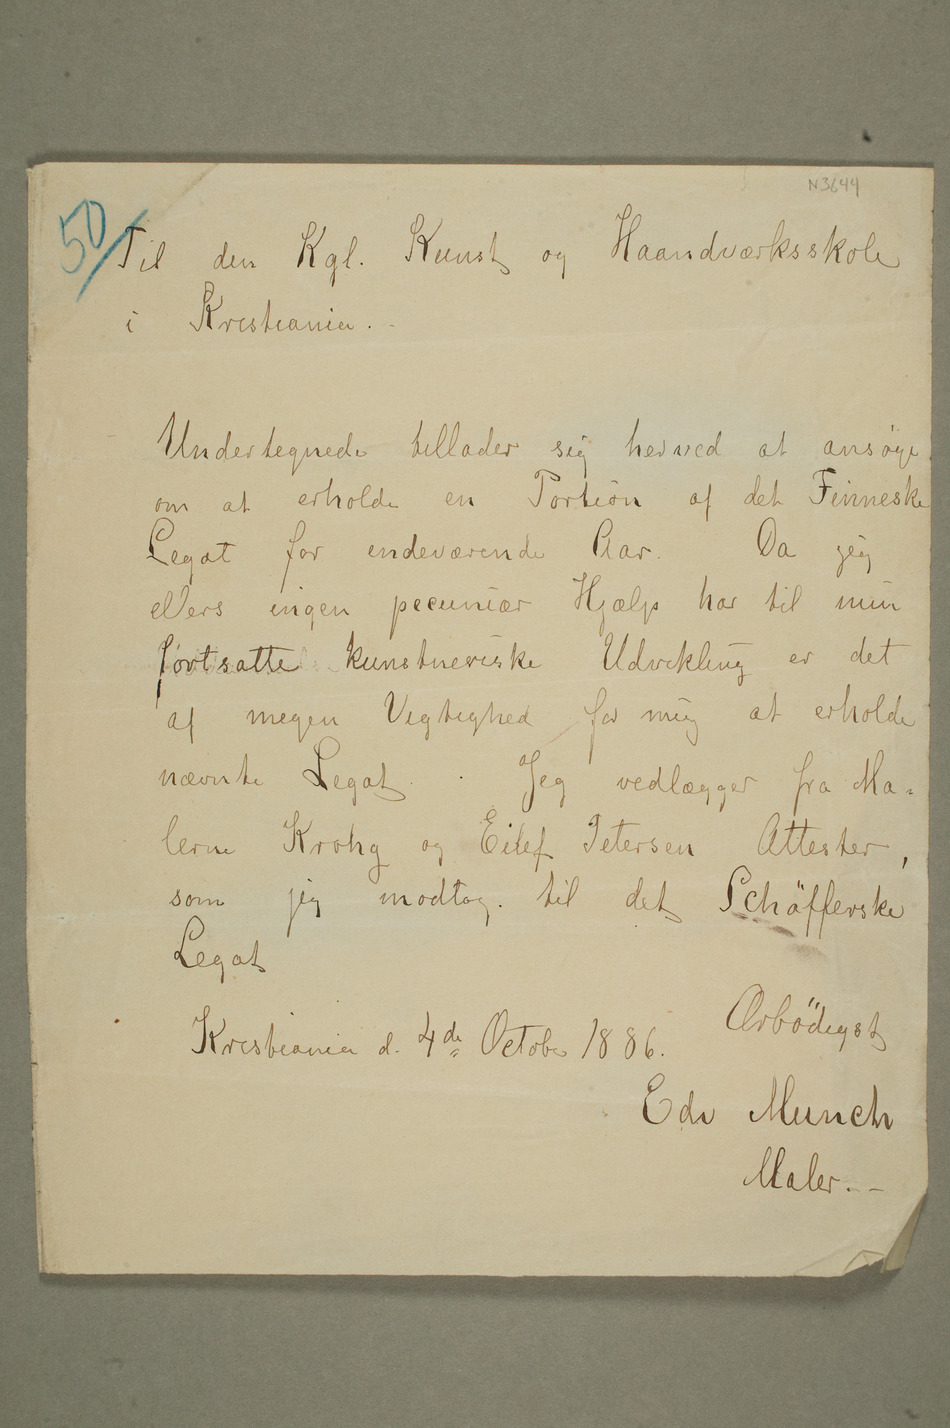 N3644
50
Til den Kgl. Kunst og Haandværksskole
i Kristiania. -
Undertegnede tillader sig herved at ansöge
om at erholde en Portion af det Finneske
Legat for indeværende Aar. Da jeg
ellers ingen pecuniær Hjælp har til min
fortsatte kunstneriske Udvikling er det
af megen Vigtighed for mig at erholde
nævnte Legat. Jeg vedlægger fra Ma-
lerne Krohg og Eilef Petersen Attester,
som jeg modtog til det Schäfferske
Legat
Ærbödigst
Kristiania d. 4de October 1886.
Edv Munch
Maler. -